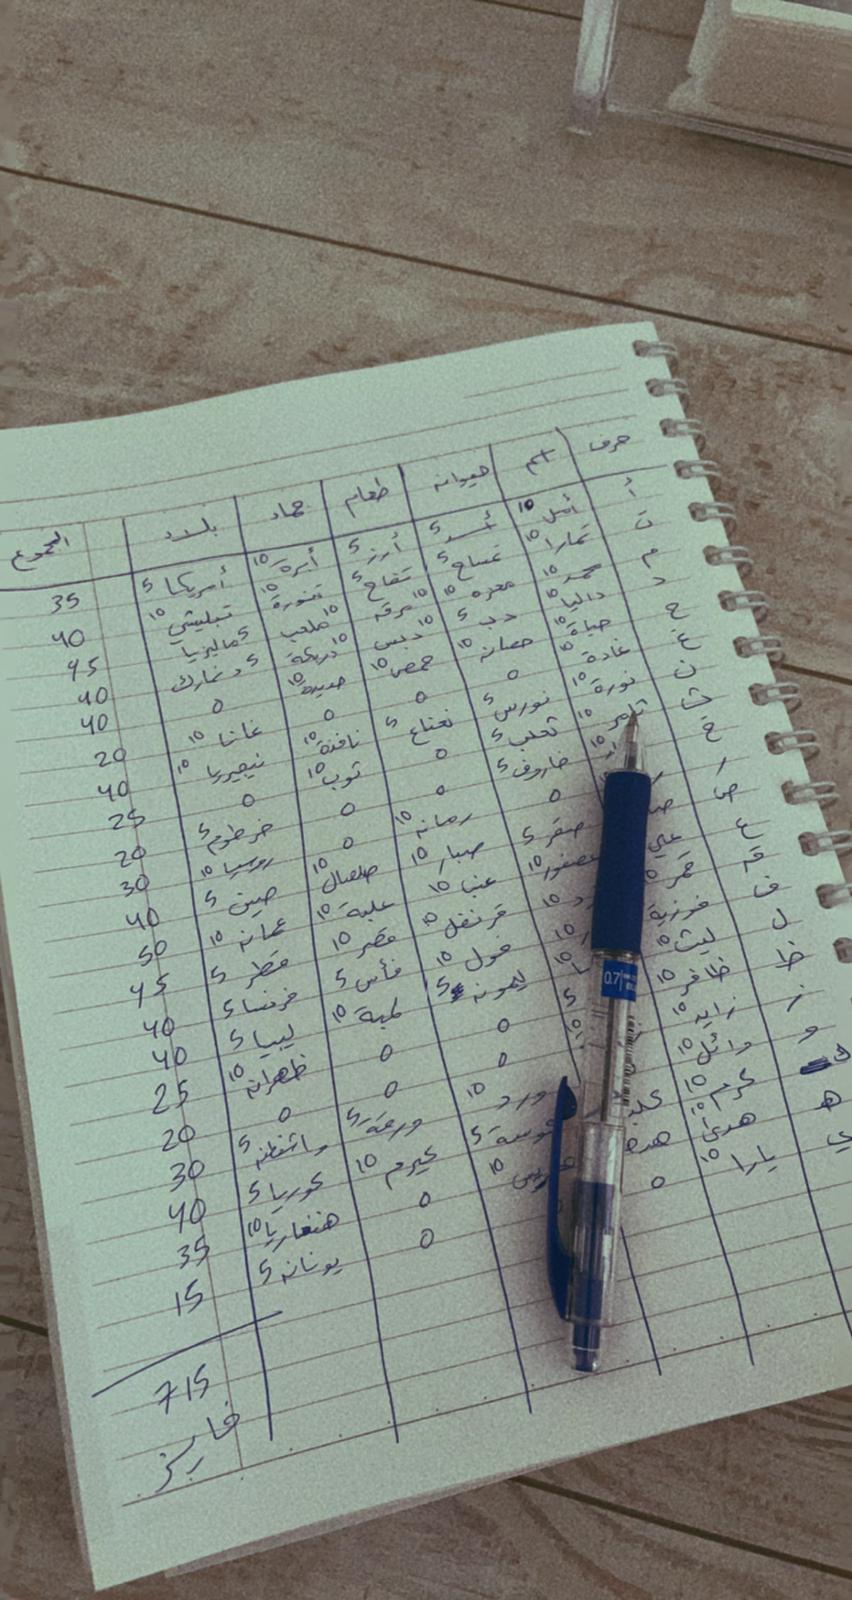 حرف اسم حيوان طعام جماد بلاد المجموع
أ أمل 10 أسد 5 أرز 5 أبرة 10 أمريكا 5 35
ت تمارا 10 تمساح 5 تفاح 5 تنورة 10 تبليسي 10 40
م محمد 10 معزه 10 مرقه 10 ملعب 10 ماليزيا 5 45
د داليا 10 دب 5 دبس 10 دريكة 10 دنمارك 5 40
ح حياة 10 حصان 10 حمص 10 حديدة 10 0 40
غ غادة 10 0 0 0 غانا 10 20
ن نورة 10 نورس 5 نعناع 5 نافذة 10 نيجيريا 10 40
ث ثامر 10 ثعلب 5 0 ثوب 10 0 25
خ 10 خاروف 5 0 0 خرطوم 5 20
ر 0 رمان 10 0 روسيا 10 30
ص صقر 5 صبار 10 صلصال 10 صين 5 40
ع علي عصفور 10 عنب 10 علبة 10 عمان 10 50
ق قمر 10 10 قرنفل 10 قصر 10 قطر 5 45
ف فوزية 10 فول 10 فأس 5 فرنسا 5 40
ل ليث 10 10 ليمون 5 لمبة 10 ليبيا 5 40
ظ ظافر 10 5 0 0 ظهران 10 25
ز زايد 10 10 0 0 0 20
و وائل 10 ورد 10 ورقة 5 واشنطن 5 30
ك كرم 10 كلب كوسة 5 كيرم 10 كوريا 5 40
ه هدى 10 هدهد 10 0 هنغاريا 10 35
ي يارا 10 0 0 يونان 5 15
715
فايز